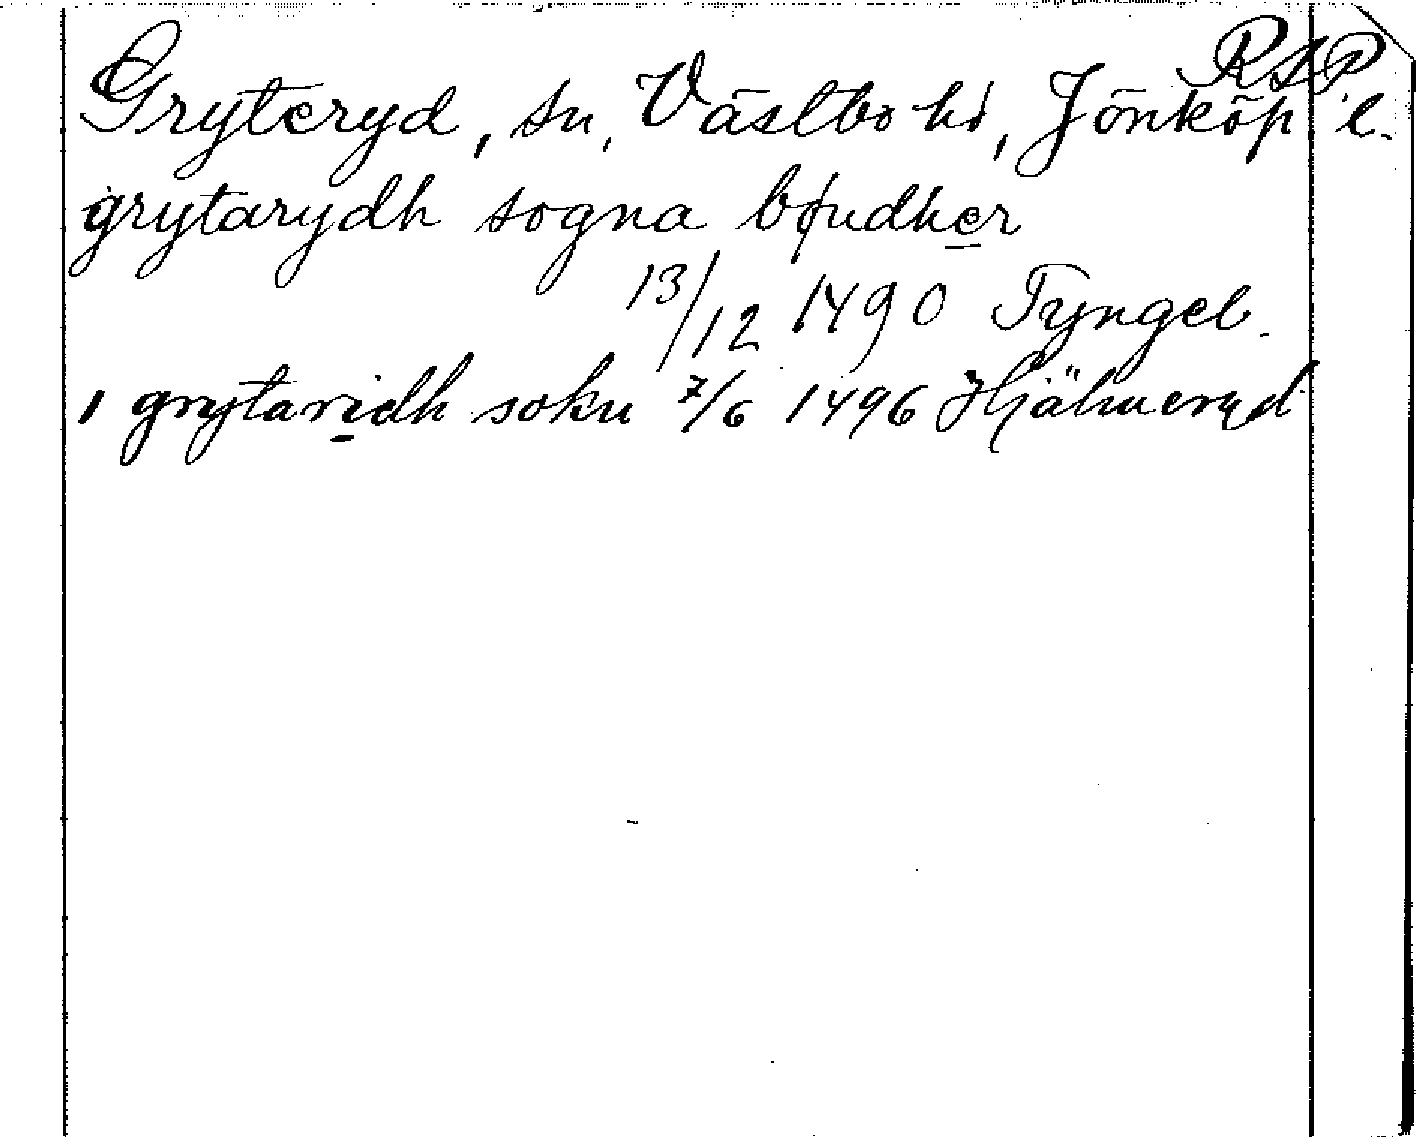 RAP
Gryteryd, sn, Västbo hd, Jönköp. l.
grytarydh sogna bøndher
13/12 1490 Tyngel.
i grytaridh sokn 7/6 1496 Hjälmeryd